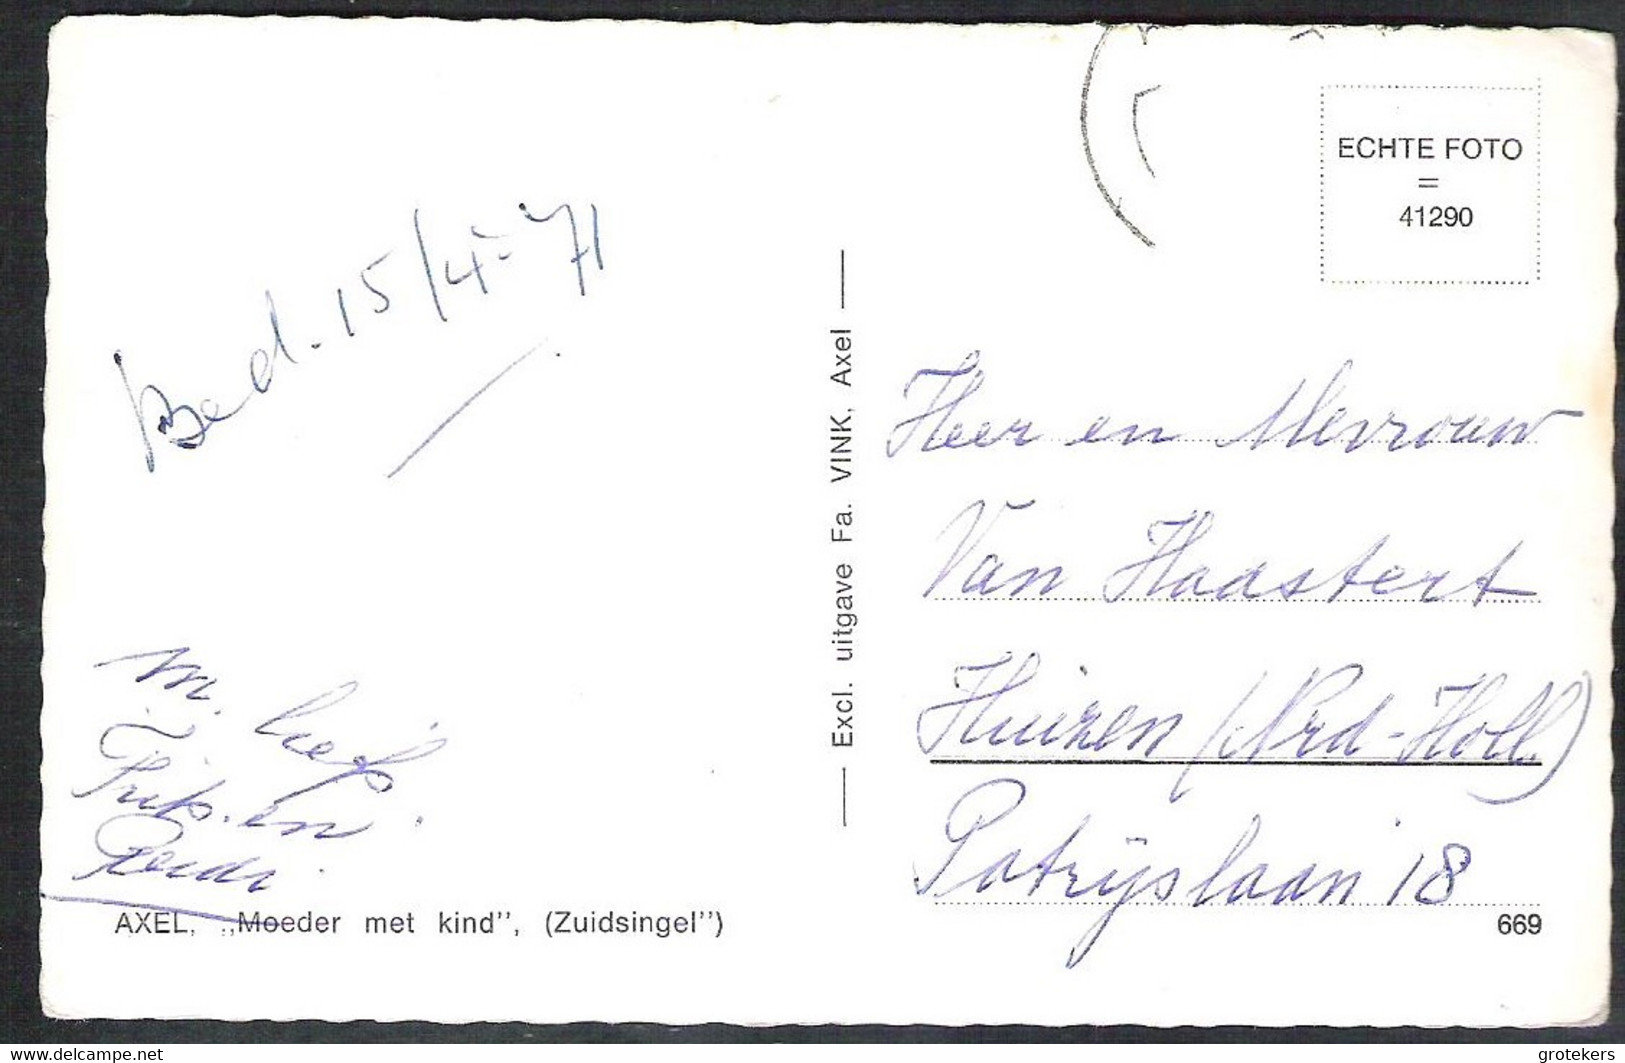 ECHTE FOTO
=
41290
15/4-'71
Excl. uitgave Fa. VINK, Axel
Heer en Mevrouw
Van Haastert
Huizen (Nrd-Holl.)
Patrijslaan 18
m. liefs
Frits en
AXEL, „Moeder met kind”, (Zuidsingel”)
669
www.delcampe.net
grotekers